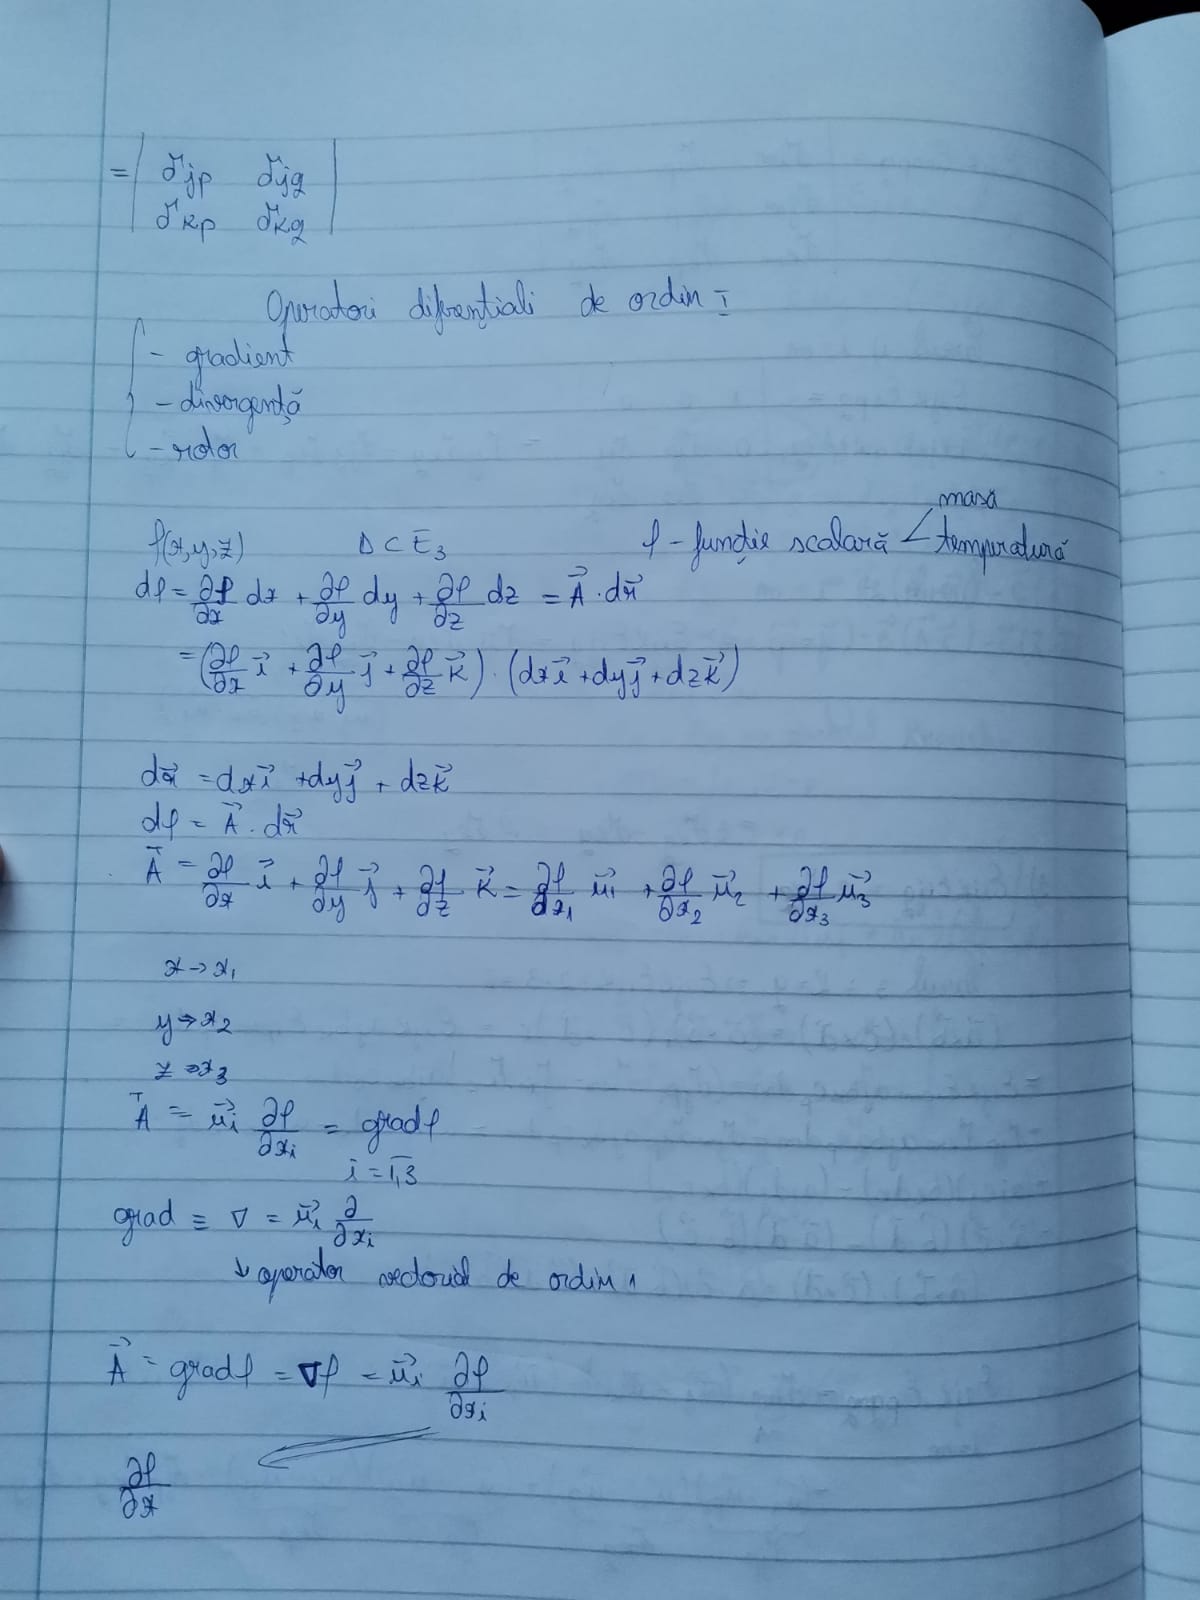 = | δjp δjq |
| δkp δkq |
Operatori difrențiali de ordin I
- gradient
- divergență
- rotor
masă
f(x,y,z) D ⊂ E₃ f - funcție scalară < temperatură
df = ∂f/∂x dx + ∂f/∂y dy + ∂f/∂z dz = A⃗ · dr⃗
= (∂f/∂x i⃗ + ∂f/∂y j⃗ + ∂f/∂z k⃗) · (dx i⃗ + dy j⃗ + dz k⃗)
dr⃗ = dx i⃗ + dy j⃗ + dz k⃗
df = A⃗ · dr⃗
A⃗ = ∂f/∂x i⃗ + ∂f/∂y j⃗ + ∂f/∂z k⃗ = ∂f/∂x₁ u⃗₁ + ∂f/∂x₂ u⃗₂ + ∂f/∂x₃ u⃗₃
x → x₁
y → x₂
z → x₃
A⃗ = u⃗ᵢ ∂f/∂xᵢ = grad f
i = 1,3
grad ≡ ∇ = u⃗ᵢ ∂/∂xᵢ
↓ operator vectorial de ordin 1
A⃗ = grad f = ∇f = u⃗ᵢ ∂f/∂xᵢ
∂f/∂x